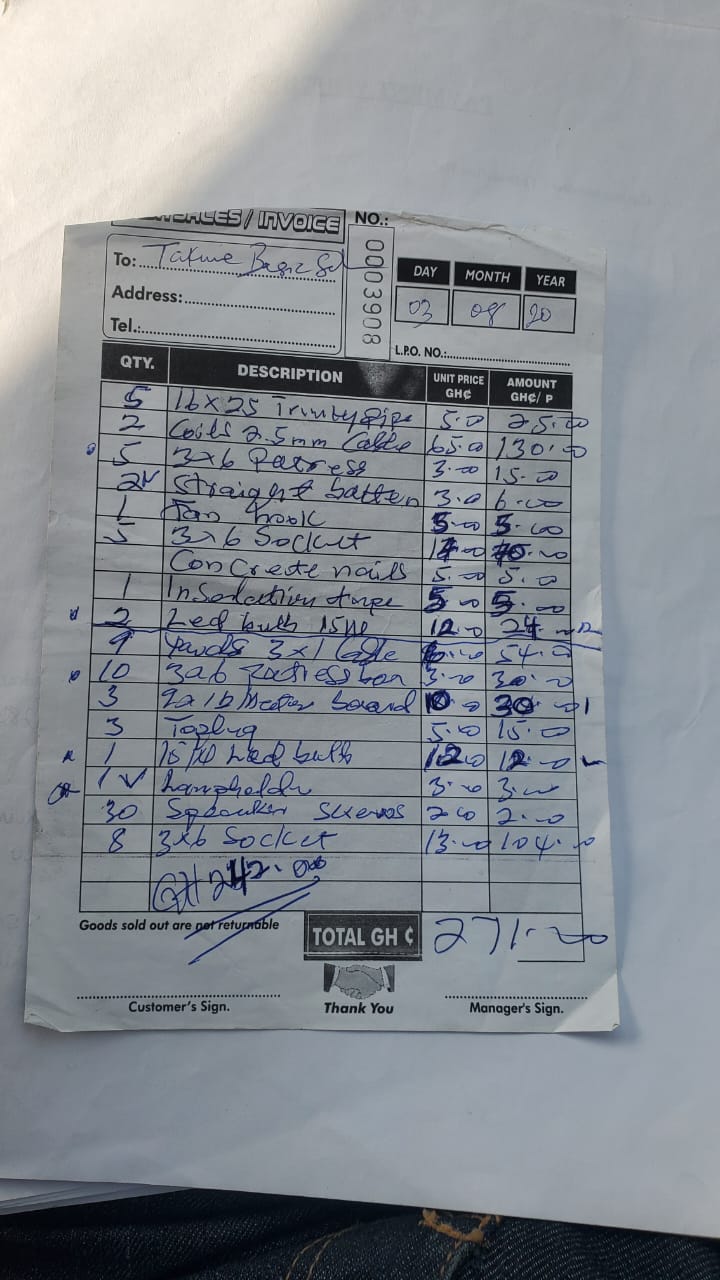 SALES/INVOICE NO.:
0003908
To: Basic
Address:
Tel.:
DAY MONTH YEAR
03 08 20
L.P.O. NO.:
QTY. DESCRIPTION UNIT PRICE GH¢ AMOUNT GH¢/ P
5 16x25 Trinity Pipe 5.00 25.00
2 Coils 2.5mm Cable 65.0 130.00
5 3x6 Patress 3.00 15.00
2 Straight batten 3.0 6.00
1 Fan hook 5.00 5.00
5 3x6 Socket
Concrete nails 5.00 5.0
1 5.0 5.00
2 Led bulb 15W 12.0 24.00
9 Yards 3x1 Cable 54.0
10 3.00 30.00
3 board 10.0 30.0
3 5.00 15.00
1 15W Led bulb 12.0 12.0
1 Lampholder 3.00 3.00
30 2.00 2.00
8 3x6 Socket 13.00 104.0
242.00
Goods sold out are not returnable
TOTAL GH ¢ 271.00
Customer's Sign. Thank You Manager's Sign.